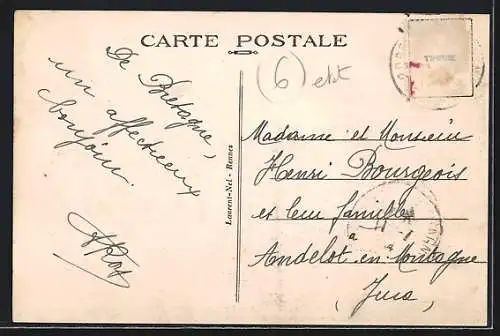 CARTE POSTALE
TIMBRE
(6) etit
De Bretagne,
un affectueux
bonjour.
Laurent-Nel - Rennes
Madame et Monsieur
Henri Bourgeois
et leur famille
a
Andelot en Montagne
(Jura)